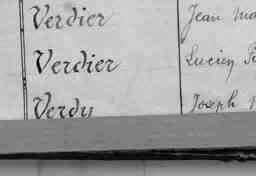 Verdier Jean
Verdier Lucien
Verdy Joseph